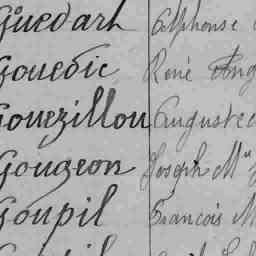 Guedart Alphonse
Gouedic René Ang
Gouezillou Auguste
Gougeon Joseph Mie
Goupil Francois M